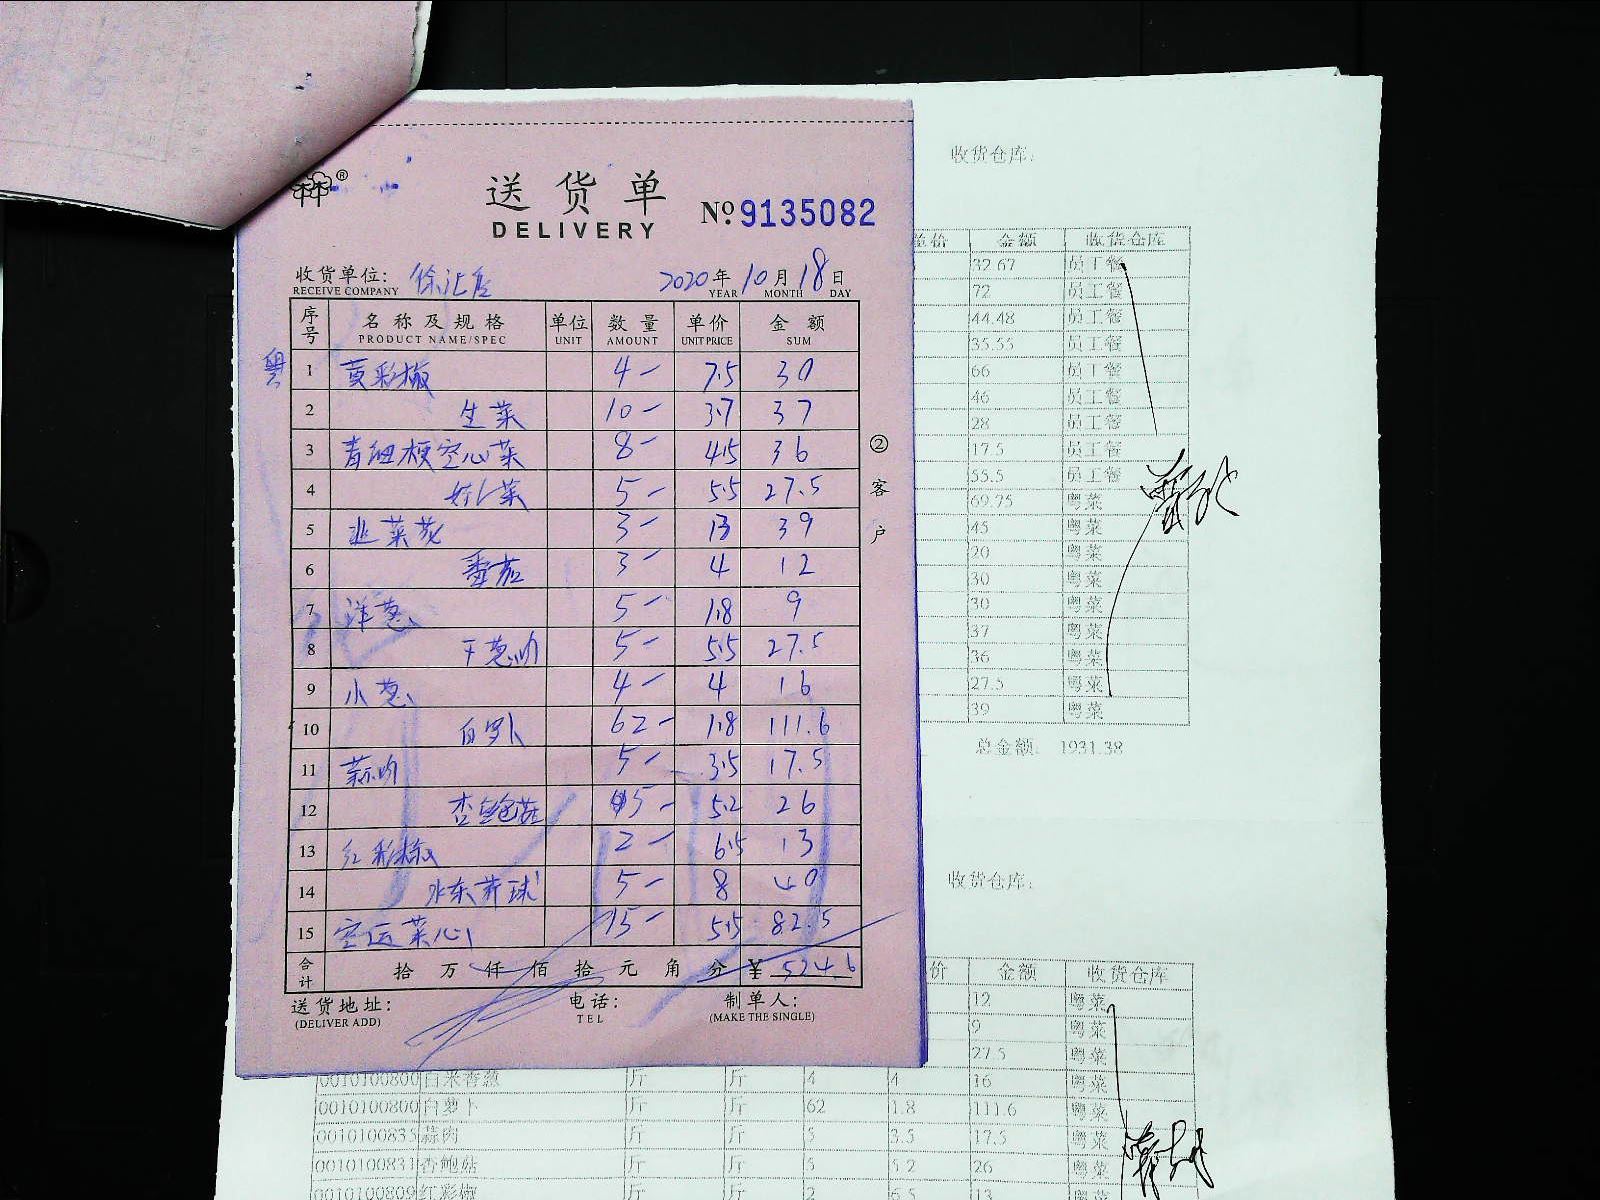 ®
送货单
DELIVERY
№ 9135082
收货单位: 徐汇店 2020年10月18日
RECEIVE COMPANY YEAR MONTH DAY
序号 名称及规格 单位 数量 单价 金额
PRODUCT NAME/SPEC UNIT AMOUNT UNIT PRICE SUM
粤 1 黄彩椒 4- 7.5 30
2 生菜 10- 3.7 37
3 青细梗空心菜 8- 4.5 36
4 5- 5.5 27.5
5 韭菜花 3- 13 39
6 番茄 3- 4 12
7 洋葱 5- 1.8 9
8 干葱肉 5- 5.5 27.5
9 小葱 4- 4 16
10 白罗卜 62- 1.8 111.6
11 蒜肉 5- 3.5 17.5
12 杏鲍菇 5- 5.2 26
13 红彩椒 2- 6.5 13
14 水东芥球 5- 8 40
15 空运菜心 15- 5.5 82.5
合计 拾 万 仟 佰 拾 元 角 分 ¥ 524.6
送货地址: 电话: 制单人:
(DELIVER ADD) TEL (MAKE THE SINGLE)
②客户
收货仓库:
单价 金额 收货仓库
32.67 员工餐
72 员工餐
44.48 员工餐
35.55 员工餐
66 员工餐
46 员工餐
28 员工餐
17.5 员工餐
55.5 员工餐
69.75 粤菜
45 粤菜
20 粤菜
30 粤菜
30 粤菜
37 粤菜
36 粤菜
27.5 粤菜
39 粤菜
总金额: 1931.38
收货仓库:
价 金额 收货仓库
12 粤菜
9 粤菜
27.5 粤菜
0010100800 白米香葱 斤 斤 4 4 16 粤菜
0010100800 白萝卜 斤 斤 62 1.8 111.6 粤菜
0010100835 蒜肉 斤 斤 5 3.5 17.5 粤菜
0010100831 杏鲍菇 斤 斤 5 5.2 26 粤菜
0010100809 红彩椒 斤 斤 2 6.5 13 粤菜